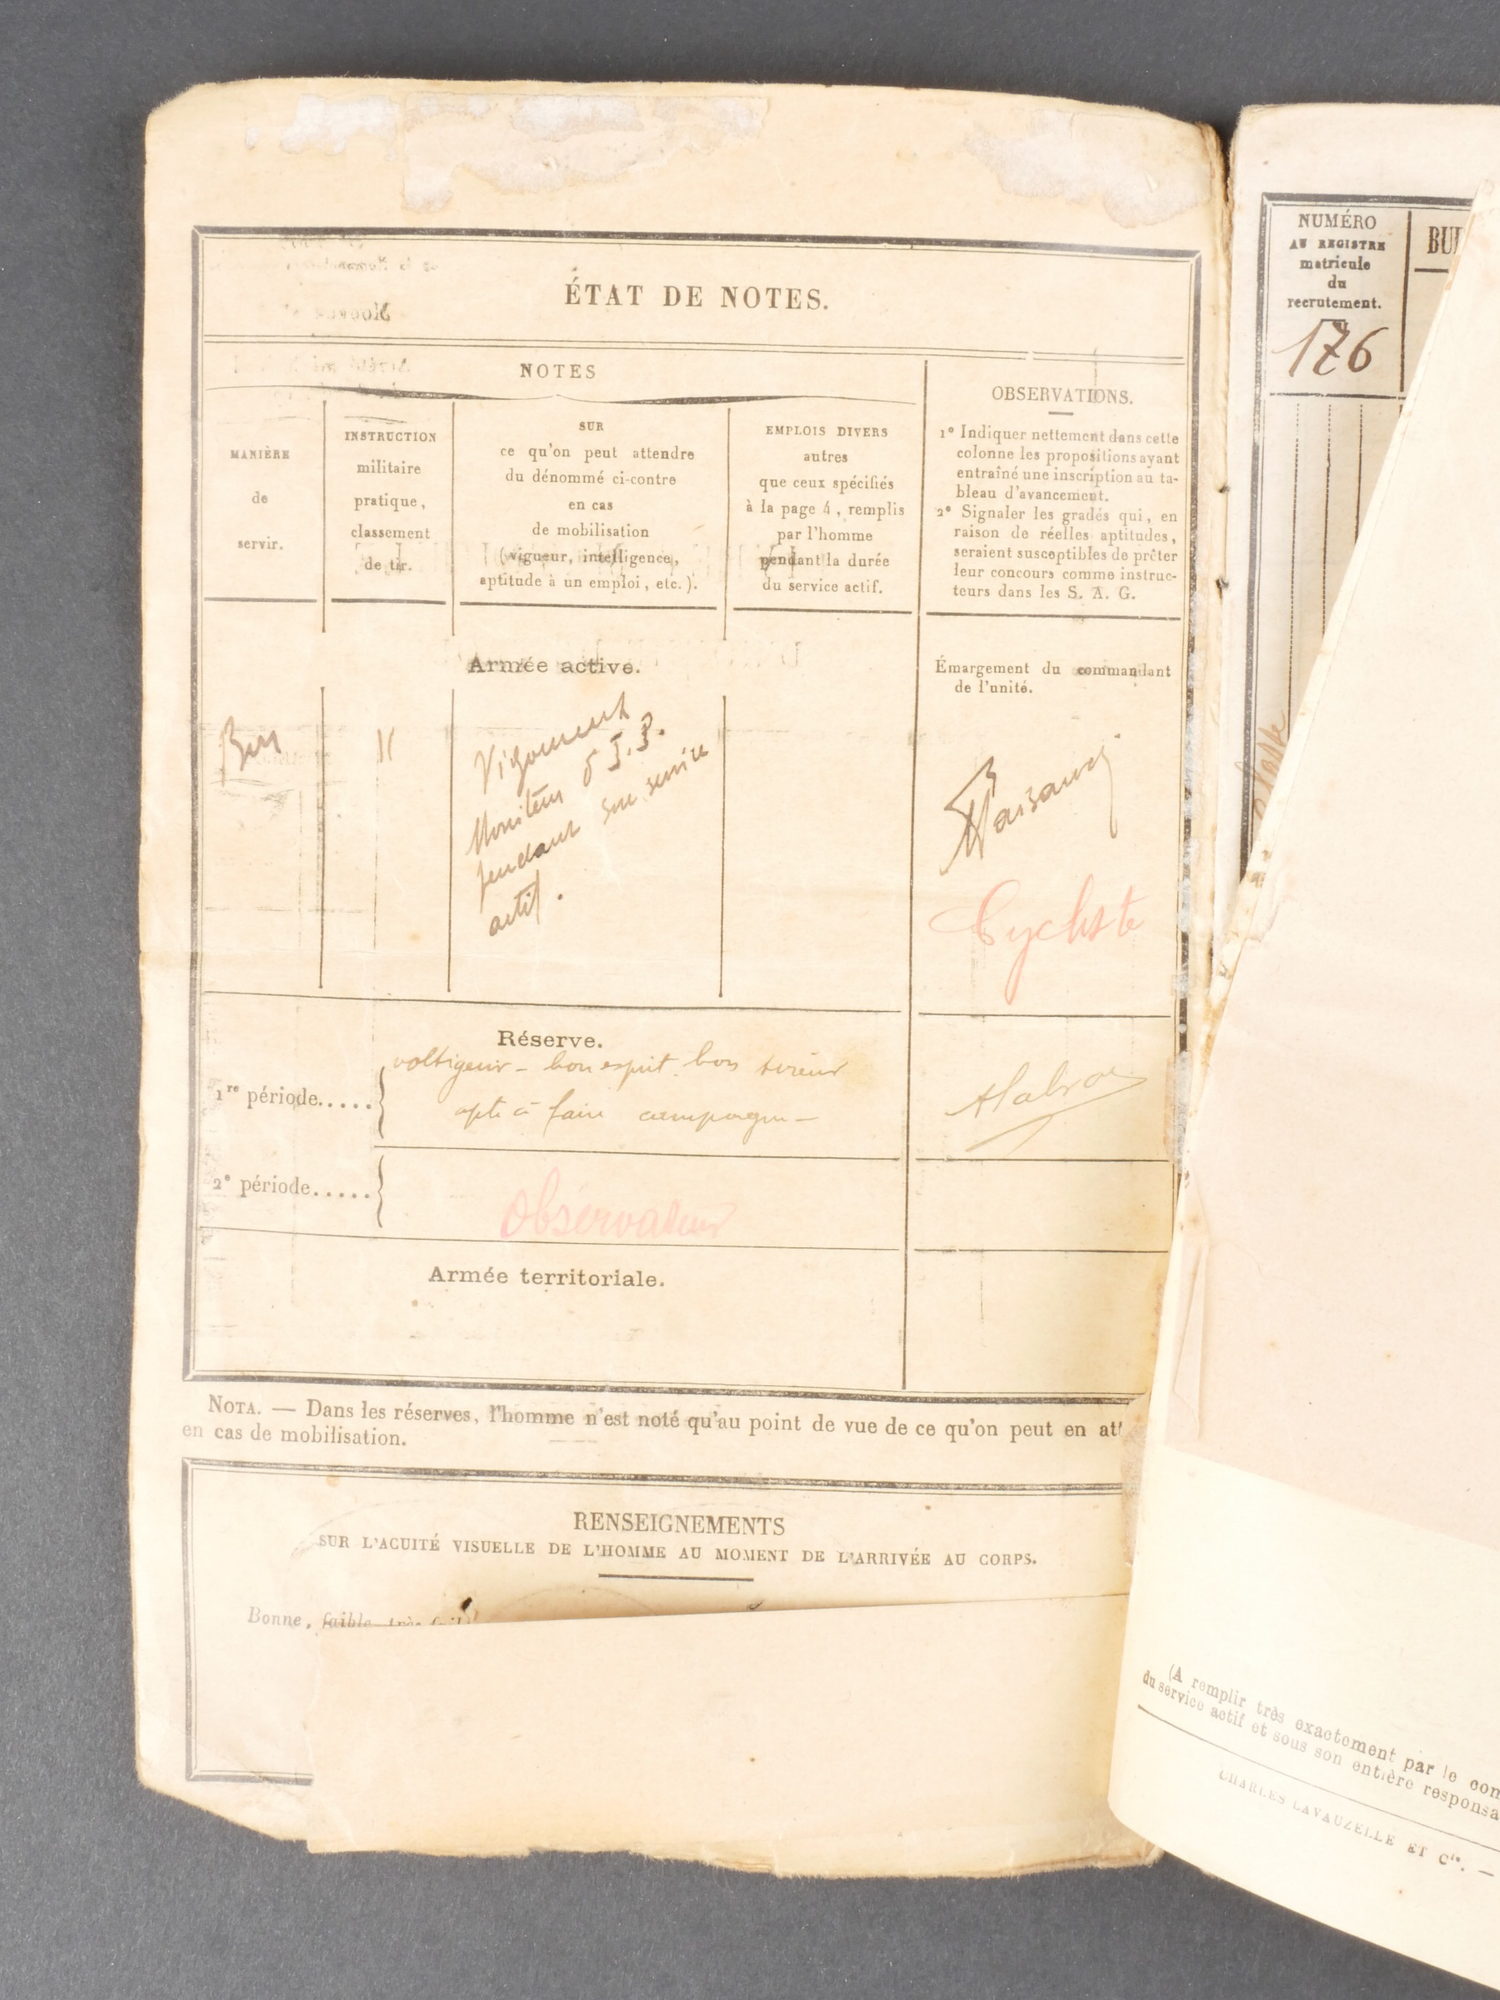 ÉTAT DE NOTES.
NOTES
MANIÈRE
de
servir.
INSTRUCTION
militaire
pratique,
classement
de tir.
SUR
ce qu'on peut attendre
du dénommé ci-contre
en cas
de mobilisation
(vigueur, intelligence,
aptitude à un emploi, etc.).
EMPLOIS DIVERS
autres
que ceux spécifiés
à la page 4, remplis
par l'homme
pendant la durée
du service actif.
OBSERVATIONS.
1° Indiquer nettement dans cette
colonne les propositions ayant
entraîné une inscription au ta-
bleau d'avancement.
2° Signaler les gradés qui, en
raison de réelles aptitudes,
seraient susceptibles de prêter
leur concours comme instruc-
teurs dans les S. A. G.
Armée active.
Émargement du commandant
de l'unité.
Vigoureux
Moniteur
pendant son service
actif.
Cycliste
Réserve.
1re période.....
voltigeur – bon esprit. bon tireur
apte à faire campagne –
2e période.....
Observateur
Armée territoriale.
NOTA. — Dans les réserves, l'homme n'est noté qu'au point de vue de ce qu'on peut en att
en cas de mobilisation.
RENSEIGNEMENTS
SUR L'ACUITÉ VISUELLE DE L'HOMME AU MOMENT DE L'ARRIVÉE AU CORPS.
Bonne, faible, très
NUMÉRO
AU REGISTRE
matricule
du
recrutement.
176
BU
(A remplir très exactement par le com
du service actif et sous son entière responsa
CHARLES LAVAUZELLE ET Cie. —